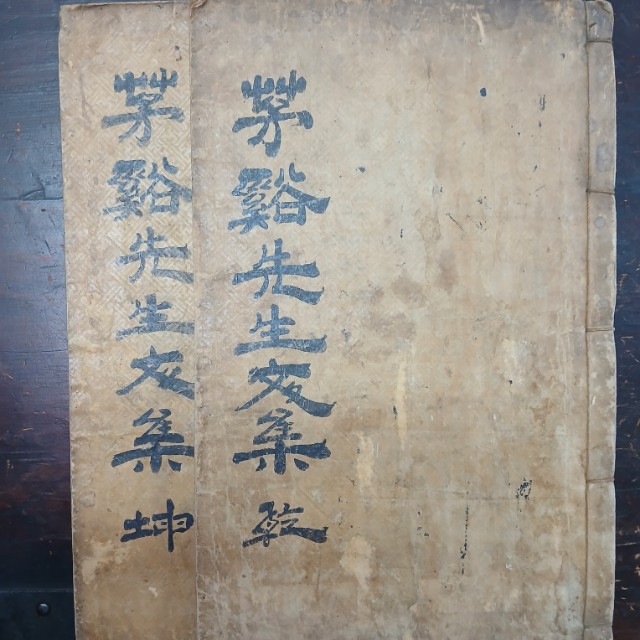 茅谿先生文集 乾
茅谿先生文集 坤